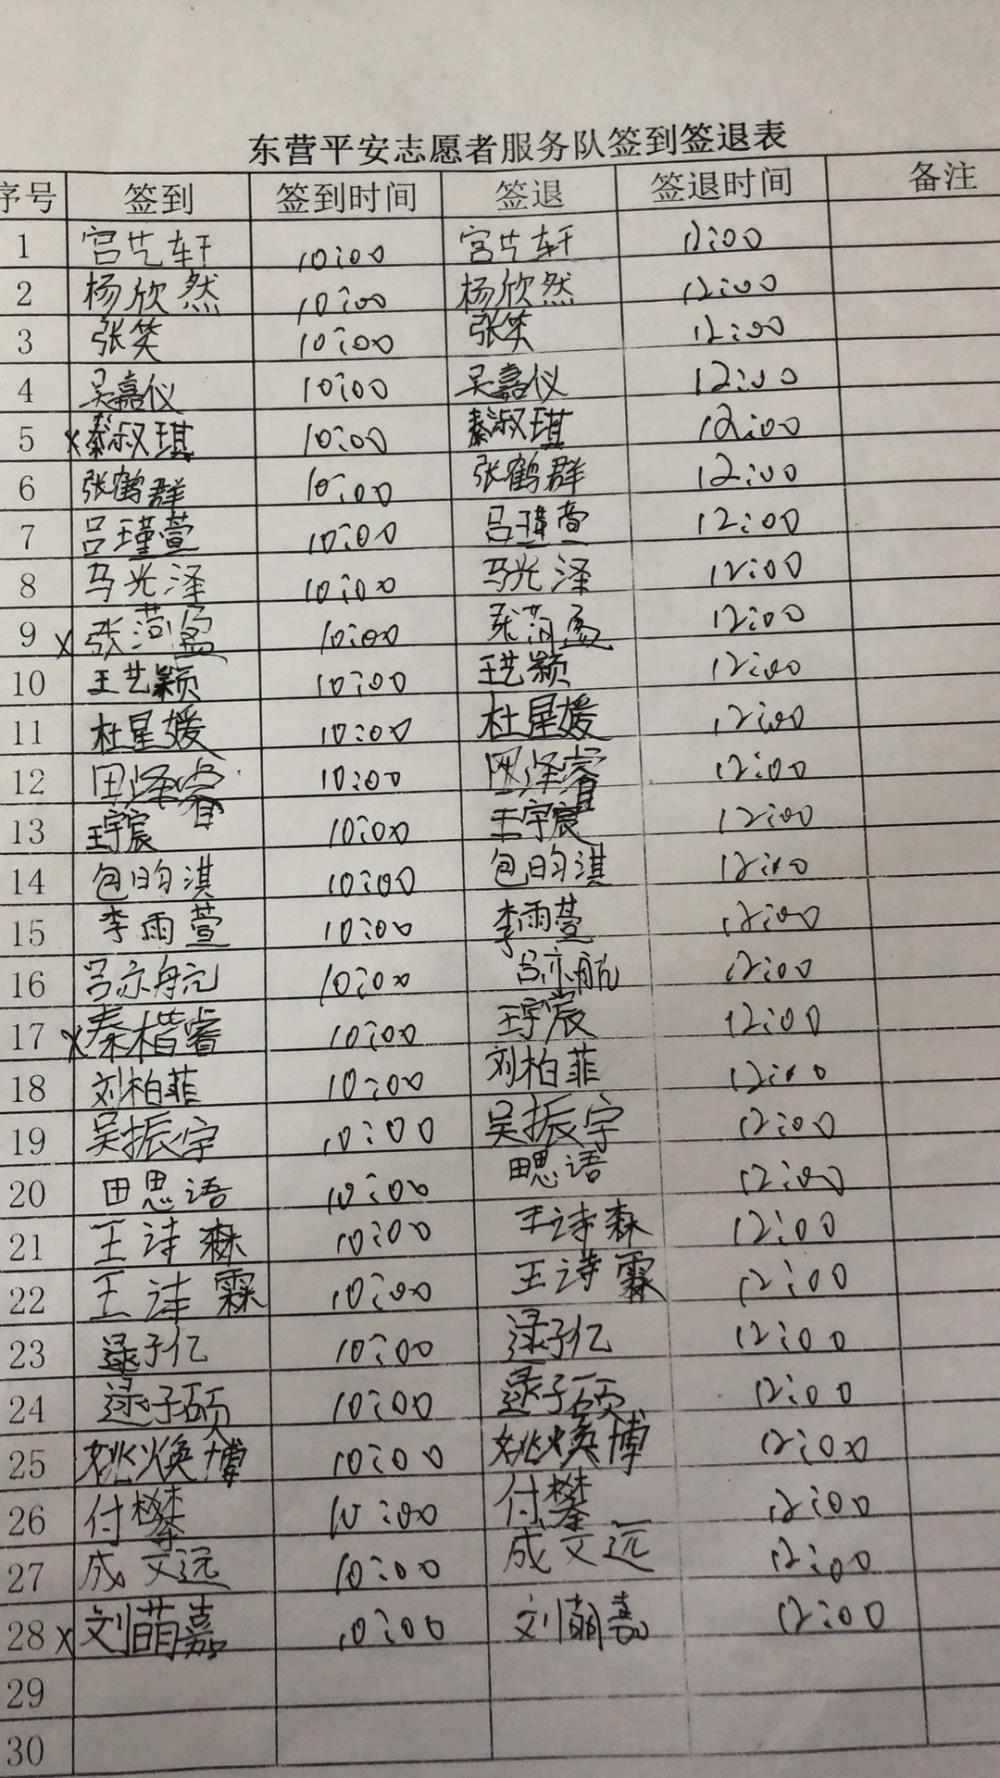 东营平安志愿者服务队签到签退表
序号 签到 签到时间 签退 签退时间 备注
1 宫艺轩 10:00 宫艺轩 12:00
2 杨欣然 10:00 杨欣然 12:00
3 张笑 10:00 张笑 12:00
4 吴嘉仪 10:00 吴嘉仪 12:00
5 x秦淑琪 10:00 秦淑琪 12:00
6 张鹤群 10:00 张鹤群 12:00
7 吕瑾萱 10:00 吕瑾萱 12:00
8 马光泽 10:00 马光泽 12:00
9 x张菏盈 10:00 张菏盈 12:00
10 王艺颖 10:00 王艺颖 12:00
11 杜星媛 10:00 杜星媛 12:00
12 田泽睿 10:00 田泽睿 12:00
13 王宇宸 10:00 王宇宸 12:00
14 包昀淇 10:00 包昀淇 12:00
15 李雨萱 10:00 李雨萱 12:00
16 吕亦航 10:00 吕亦航 12:00
17 x秦楷睿 10:00 王宇宸 12:00
18 刘柏菲 10:00 刘柏菲 12:00
19 吴振宇 10:00 吴振宇 12:00
20 田思语 10:00 田思语 12:00
21 王诗森 10:00 王诗森 12:00
22 王诗霖 10:00 王诗霖 12:00
23 逯子仁 10:00 逯子仁 12:00
24 逯子硕 10:00 逯子硕 12:00
25 姚焕博 10:00 姚焕博 12:00
26 付攀 10:00 付攀 12:00
27 成文远 10:00 成文远 12:00
28 x刘萌嘉 10:00 刘萌嘉 12:00
29
30